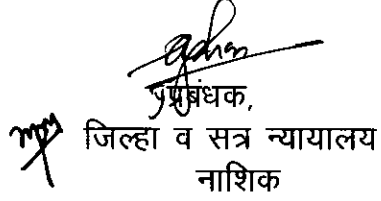 प्रबंधक,
जिल्हा व सत्र न्यायालय
नाशिक